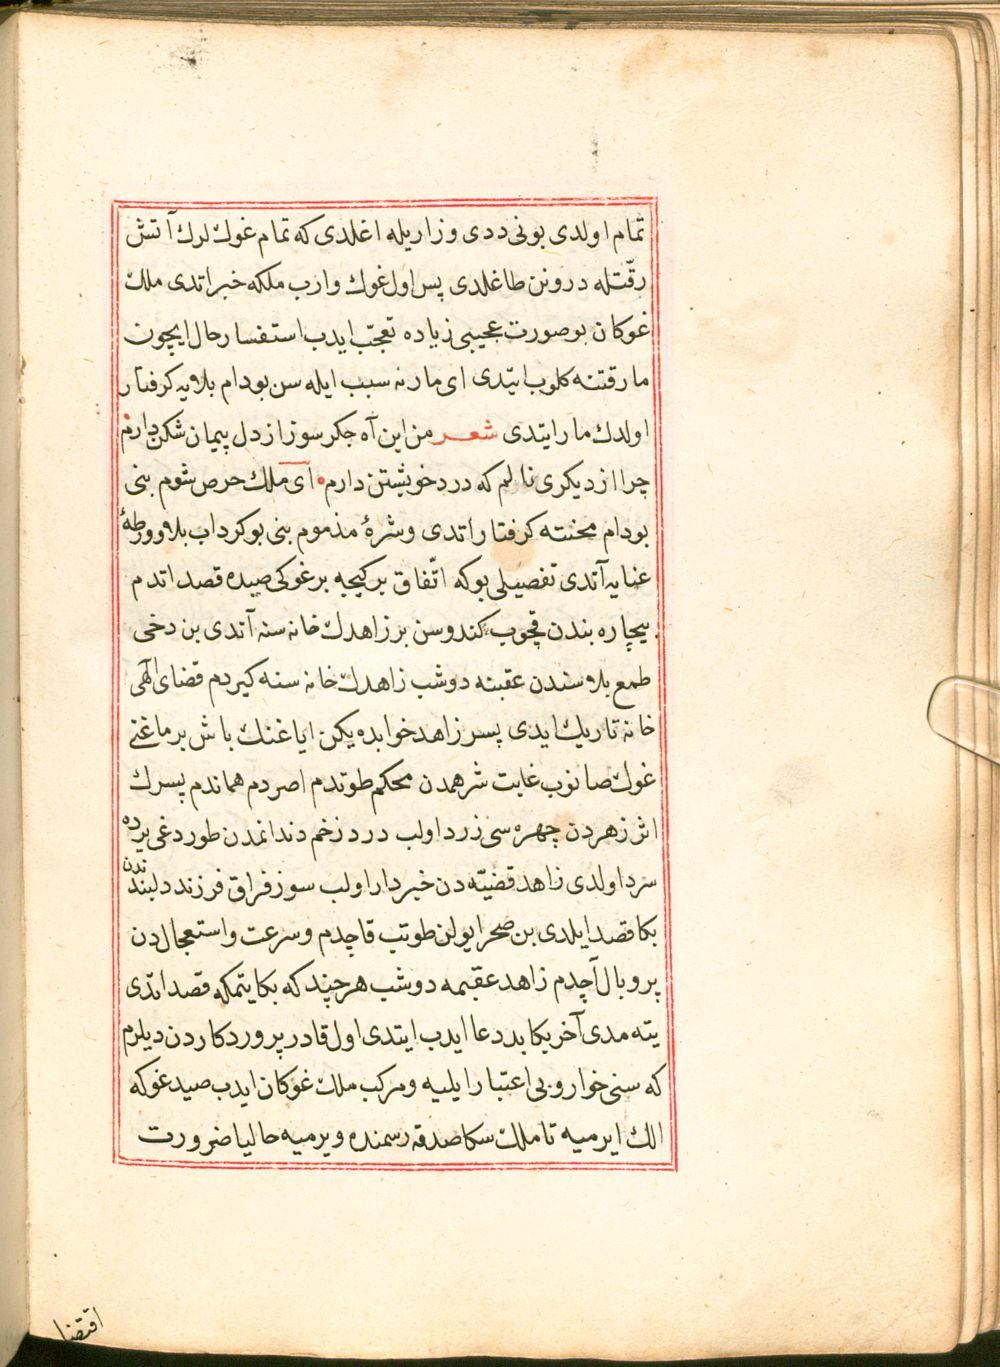 تمام اولدی بونی ددی و زاریله اغلدی که تمام غوك لرك آتش
رقّتله درونن طاغلدی پس اول غوك وارب ملکه خبر اتدی ملك
غوکان بو صورت عجیبی زیاده تعجّب ایدب استفسار حال ایچون
مار قتنه کلوب ایتدی ای مار نه سبب ایله سن بو دام بلایه کرفتار
اولدك مار ایتدی شعر من این آه جکر سوز از دل پیمان شکن دارم
چرا از دیکری نالم که درد خویشتن دارم ای ملك حرص شوم بنی
بو دام محنته کرفتار اتدی و شرهٔ مذموم بنی بو کرداب بلا و ورطهٔ
عنایه آتدی تفصیلی بو که اتّفاق بر کیجه بر غوکی صیده قصد اتدم
بیچاره بندن قچوب کندوسن بر زاهدك خانه سنه آتدی بن دخی
طمع بلاسندن عقبنه دوشب زاهدك خانه سنه کیردم قضای الٓهی
خانه تاریك ایدی پسر زاهد خوابده یکن ایاغنك باش برماغنی
غوك صانوب غایت شرهمدن محکم طوتدم اصردم هماندم پسرك
اثر زهردن چهره سی زرد اولب درد زخم دندانمدن طوردغی یرده
سرد اولدی زاهد قضیّه دن خبردار اولب سوز فراق فرزند دلبندندن
بکا قصد ایلدی بن صحرا یولن طوتب قاچدم و سرعت و استعجال دن
پر و بال آچدم زاهد عقبمه دوشب هر چند که بکا یتمکه قصد اتدی
یته مدی آخر بکا بد دعا ایدب ایتدی اول قادر پروردکاردن دیلرم
که سنی خوار و بی اعتبار ایلیه و مرکب ملك غوکان ایدب صید غوکه
الك ایرمیه تا ملك سکا صدقه رسمنده ویرمیه حالیا ضرورت
اقتضا